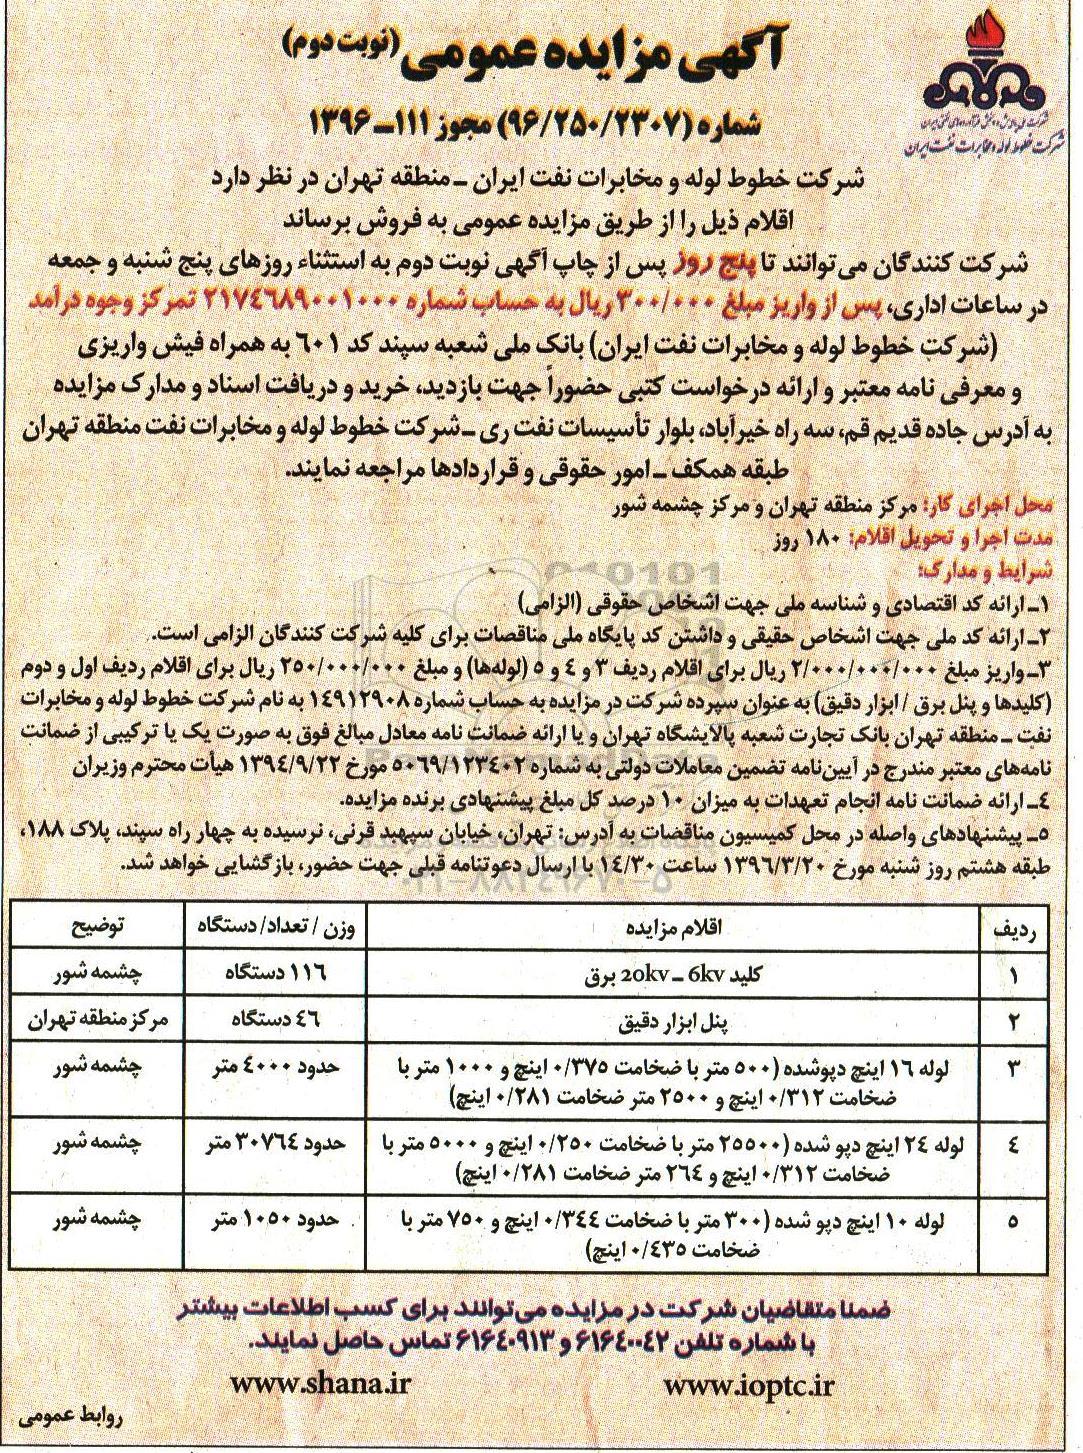 آگهی مزایده عمومی (نوبت دوم)
شرکت ملی پالایش و پخش فرآورده‌های نفتی ایران
شرکت خطوط لوله و مخابرات نفت ایران
شماره (۹۶/۲۵۰/۲۳۰۷) مجوز ۱۱۱ـ ۱۳۹۶
شرکت خطوط لوله و مخابرات نفت ایران ـ منطقه تهران در نظر دارد
اقلام ذیل را از طریق مزایده عمومی به فروش برساند
شرکت کنندگان می‌توانند تا پنج روز پس از چاپ آگهی نوبت دوم به استثناء روزهای پنج شنبه و جمعه
در ساعات اداری، پس از واریز مبلغ ۳۰۰/۰۰۰ ریال به حساب شماره ۲۱۷۴۶۸۹۰۰۱۰۰۰ تمرکز وجوه درآمد
(شرکت خطوط لوله و مخابرات نفت ایران) بانک ملی شعبه سپند کد ۶۰۱ به همراه فیش واریزی
و معرفی نامه معتبر و ارائه درخواست کتبی حضوراً جهت بازدید، خرید و دریافت اسناد و مدارک مزایده
به آدرس جاده قدیم قم، سه راه خیرآباد، بلوار تأسیسات نفت ری ـ شرکت خطوط لوله و مخابرات نفت منطقه تهران
طبقه همکف ـ امور حقوقی و قراردادها مراجعه نمایند.
محل اجرای کار: مرکز منطقه تهران و مرکز چشمه شور
مدت اجرا و تحویل اقلام: ۱۸۰ روز
شرایط و مدارک:
۱ـ ارائه کد اقتصادی و شناسه ملی جهت اشخاص حقوقی (الزامی)
۲ـ ارائه کد ملی جهت اشخاص حقیقی و داشتن کد پایگاه ملی مناقصات برای کلیه شرکت کنندگان الزامی است.
۳ـ واریز مبلغ ۲/۰۰۰/۰۰۰/۰۰۰ ریال برای اقلام ردیف ۳ و ۴ و ۵ (لوله‌ها) و مبلغ ۲۵۰/۰۰۰/۰۰۰ ریال برای اقلام ردیف اول و دوم
(کلیدها و پنل برق / ابزار دقیق) به عنوان سپرده شرکت در مزایده به حساب شماره ۱۴۹۱۲۹۰۸ به نام شرکت خطوط لوله و مخابرات
نفت ـ منطقه تهران بانک تجارت شعبه پالایشگاه تهران و یا ارائه ضمانت نامه معادل مبالغ فوق به صورت یک یا ترکیبی از ضمانت
نامه‌های معتبر مندرج در آیین‌نامه تضمین معاملات دولتی به شماره ۵۰۶۹/۱۲۳۴۰۲ مورخ ۱۳۹۴/۹/۲۲ هیأت محترم وزیران
۴ـ ارائه ضمانت نامه انجام تعهدات به میزان ۱۰ درصد کل مبلغ پیشنهادی برنده مزایده.
۵ـ پیشنهادهای واصله در محل کمیسیون مناقصات به آدرس: تهران، خیابان سپهبد قرنی، نرسیده به چهار راه سپند، پلاک ۱۸۸،
طبقه هشتم روز شنبه مورخ ۱۳۹۶/۳/۲۰ ساعت ۱۴/۳۰ با ارسال دعوتنامه قبلی جهت حضور، بازگشایی خواهد شد.
ردیف اقلام مزایده وزن / تعداد/ دستگاه توضیح
۱ کلید 6kv ـ 20kv برق ۱۱۶ دستگاه چشمه شور
۲ پنل ابزار دقیق ۴۶ دستگاه مرکز منطقه تهران
۳ لوله ۱۶ اینچ دپوشده (۵۰۰ متر با ضخامت ۰/۳۷۵ اینچ و ۱۰۰۰ متر با حدود ۴۰۰۰ متر چشمه شور
ضخامت ۰/۳۱۲ اینچ و ۲۵۰۰ متر ضخامت ۰/۲۸۱ اینچ)
۴ لوله ۲۴ اینچ دپو شده (۲۵۵۰۰ متر با ضخامت ۰/۲۵۰ اینچ و ۵۰۰۰ متر با حدود ۳۰۷۶۴ متر چشمه شور
ضخامت ۰/۳۱۲ اینچ و ۲۶۴ متر ضخامت ۰/۲۸۱ اینچ)
۵ لوله ۱۰ اینچ دپو شده (۳۰۰ متر با ضخامت ۰/۳۴۴ اینچ و ۷۵۰ متر با حدود ۱۰۵۰ متر چشمه شور
ضخامت ۰/۴۳۵ اینچ)
ضمنا متقاضیان شرکت در مزایده می‌توانند برای کسب اطلاعات بیشتر
با شماره تلفن ۶۱۶۴۰۰۴۲ و ۶۱۶۴۰۹۱۳ تماس حاصل نمایند.
www.ioptc.ir www.shana.ir
روابط عمومی